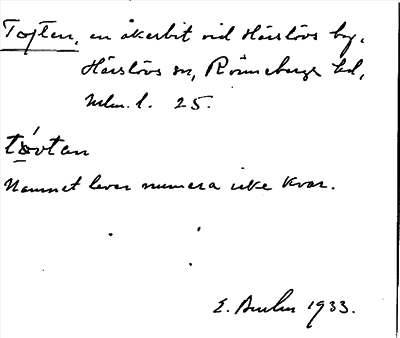 Toften, en åkerbit vid Härslövs by,
Härslövs sn, Rönnebergs hd,
Mlm. l. 25.
tóvtan
Namnet lever numera icke kvar.
E. 1933.